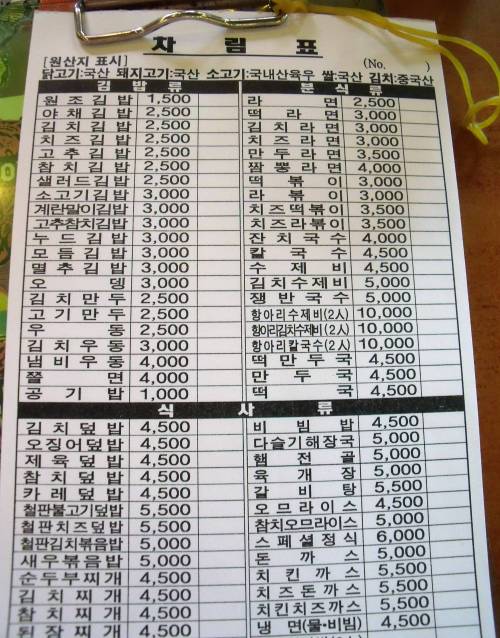 차 림 표
[원산지 표시] (No. )
닭고기:국산 돼지고기:국산 소고기:국내산육우 쌀:국산 김치:중국산
김 밥 류
원 조 김 밥 1,500
야 채 김 밥 2,500
김 치 김 밥 2,500
치 즈 김 밥 2,500
고 추 김 밥 2,500
참 치 김 밥 2,500
샐러드김밥 2,500
소고기김밥 3,000
계란말이김밥 3,000
고추참치김밥 3,000
누 드 김 밥 3,000
모 듬 김 밥 3,000
멸 추 김 밥 3,000
오 뎅 3,000
김 치 만 두 2,500
고 기 만 두 2,500
우 동 2,500
김 치 우 동 3,000
냄 비 우 동 4,000
쫄 면 4,000
공 기 밥 1,000
분 식 류
라 면 2,500
떡 라 면 3,000
김 치 라 면 3,000
치 즈 라 면 3,000
만 두 라 면 3,500
짬 뽕 라 면 4,000
떡 볶 이 3,000
라 볶 이 3,000
치 즈 떡 볶 이 3,500
치 즈 라 볶 이 3,500
잔 치 국 수 4,000
칼 국 수 4,500
수 제 비 4,500
김 치 수 제 비 5,000
쟁 반 국 수 5,000
항아리수제비(2人) 10,000
항아리김치수제비(2人) 10,000
항아리칼국수(2人) 10,000
떡 만 두 국 4,500
만 두 국 4,500
떡 국 4,500
식 사 류
김 치 덮 밥 4,500
오징어덮밥 4,500
제 육 덮 밥 4,500
참 치 덮 밥 4,500
카 레 덮 밥 4,500
철판불고기덮밥 5,500
철판치즈덮밥 5,500
철판김치볶음밥 5,000
새우볶음밥 5,000
순두부찌개 4,500
김 치 찌 개 4,500
참 치 찌 개 4,500
된 장 찌 개 4,500
비 빔 밥 4,500
다슬기해장국 5,000
햄 전 골 5,000
육 개 장 5,000
갈 비 탕 5,500
오 므 라 이 스 4,500
참치오므라이스 5,000
스 페 셜 정 식 6,000
돈 까 스 5,000
치 킨 까 스 5,500
치 즈 돈 까 스 5,500
치킨치즈까스 5,500
냉 면(물·비빔) 4,500